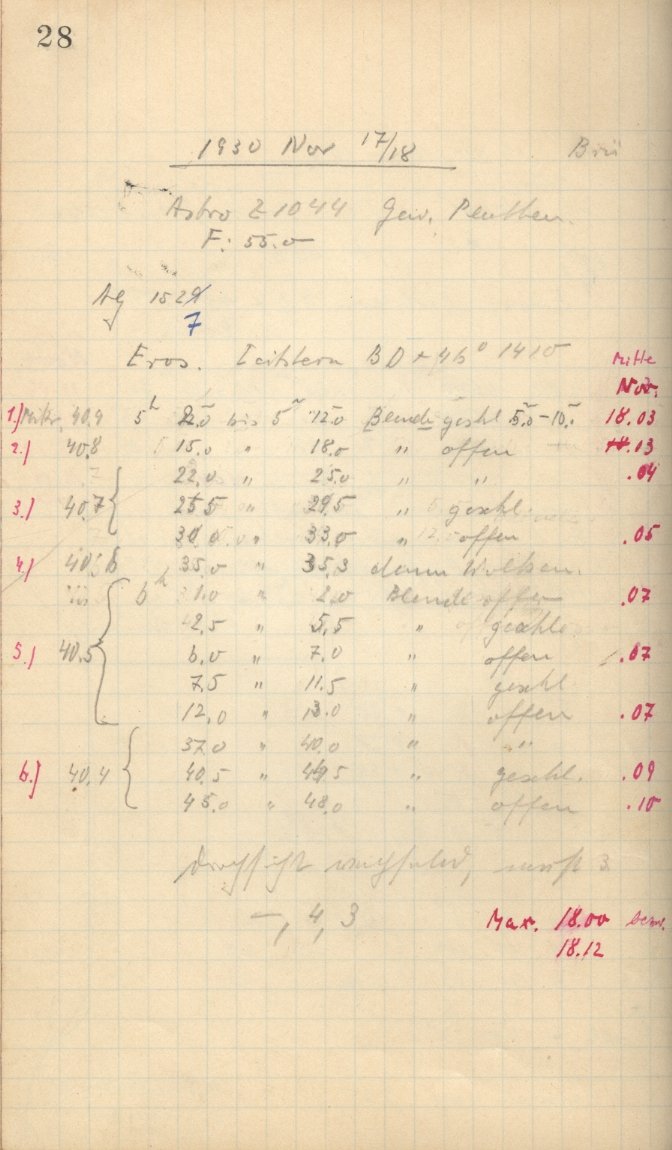 28
1930 Nov 17/18
Astro Z 1044 Gew. Penthen.
F: 55.0
AG 1529
7
Eros. Leitstern BD + 46° 1410 Mitte
Nov.
1.) Mikr. 40.4 5h 2.0 bis 5h 12.0 Blende geschl 5.0 - 10. 18.03
2.) 40.8 15.0 " 18.0 " offen .13
22.0 " 25.0 " " .04
3.) 40.7 25.5 " 29.5 " geschl.
30.0 " 33.0 " offen .05
4.) 40.6 35.0 " 35.3 dann Wolken.
6h 1.0 " 2.0 Blende offen .07
2.5 " 5.5 " geschl.
5.) 40.5 6.0 " 7.0 " offen .07
7.5 " 11.5 " geschl
12.0 " 13.0 " offen .07
37.0 " 40.0 " "
6.) 40.4 40.5 " 44.5 " geschl. .09
45.0 " 48.0 " offen .10
Durchsicht wechselnd, meist 3.
–, 4, 3 Max. 18.00 bezw.
18.12